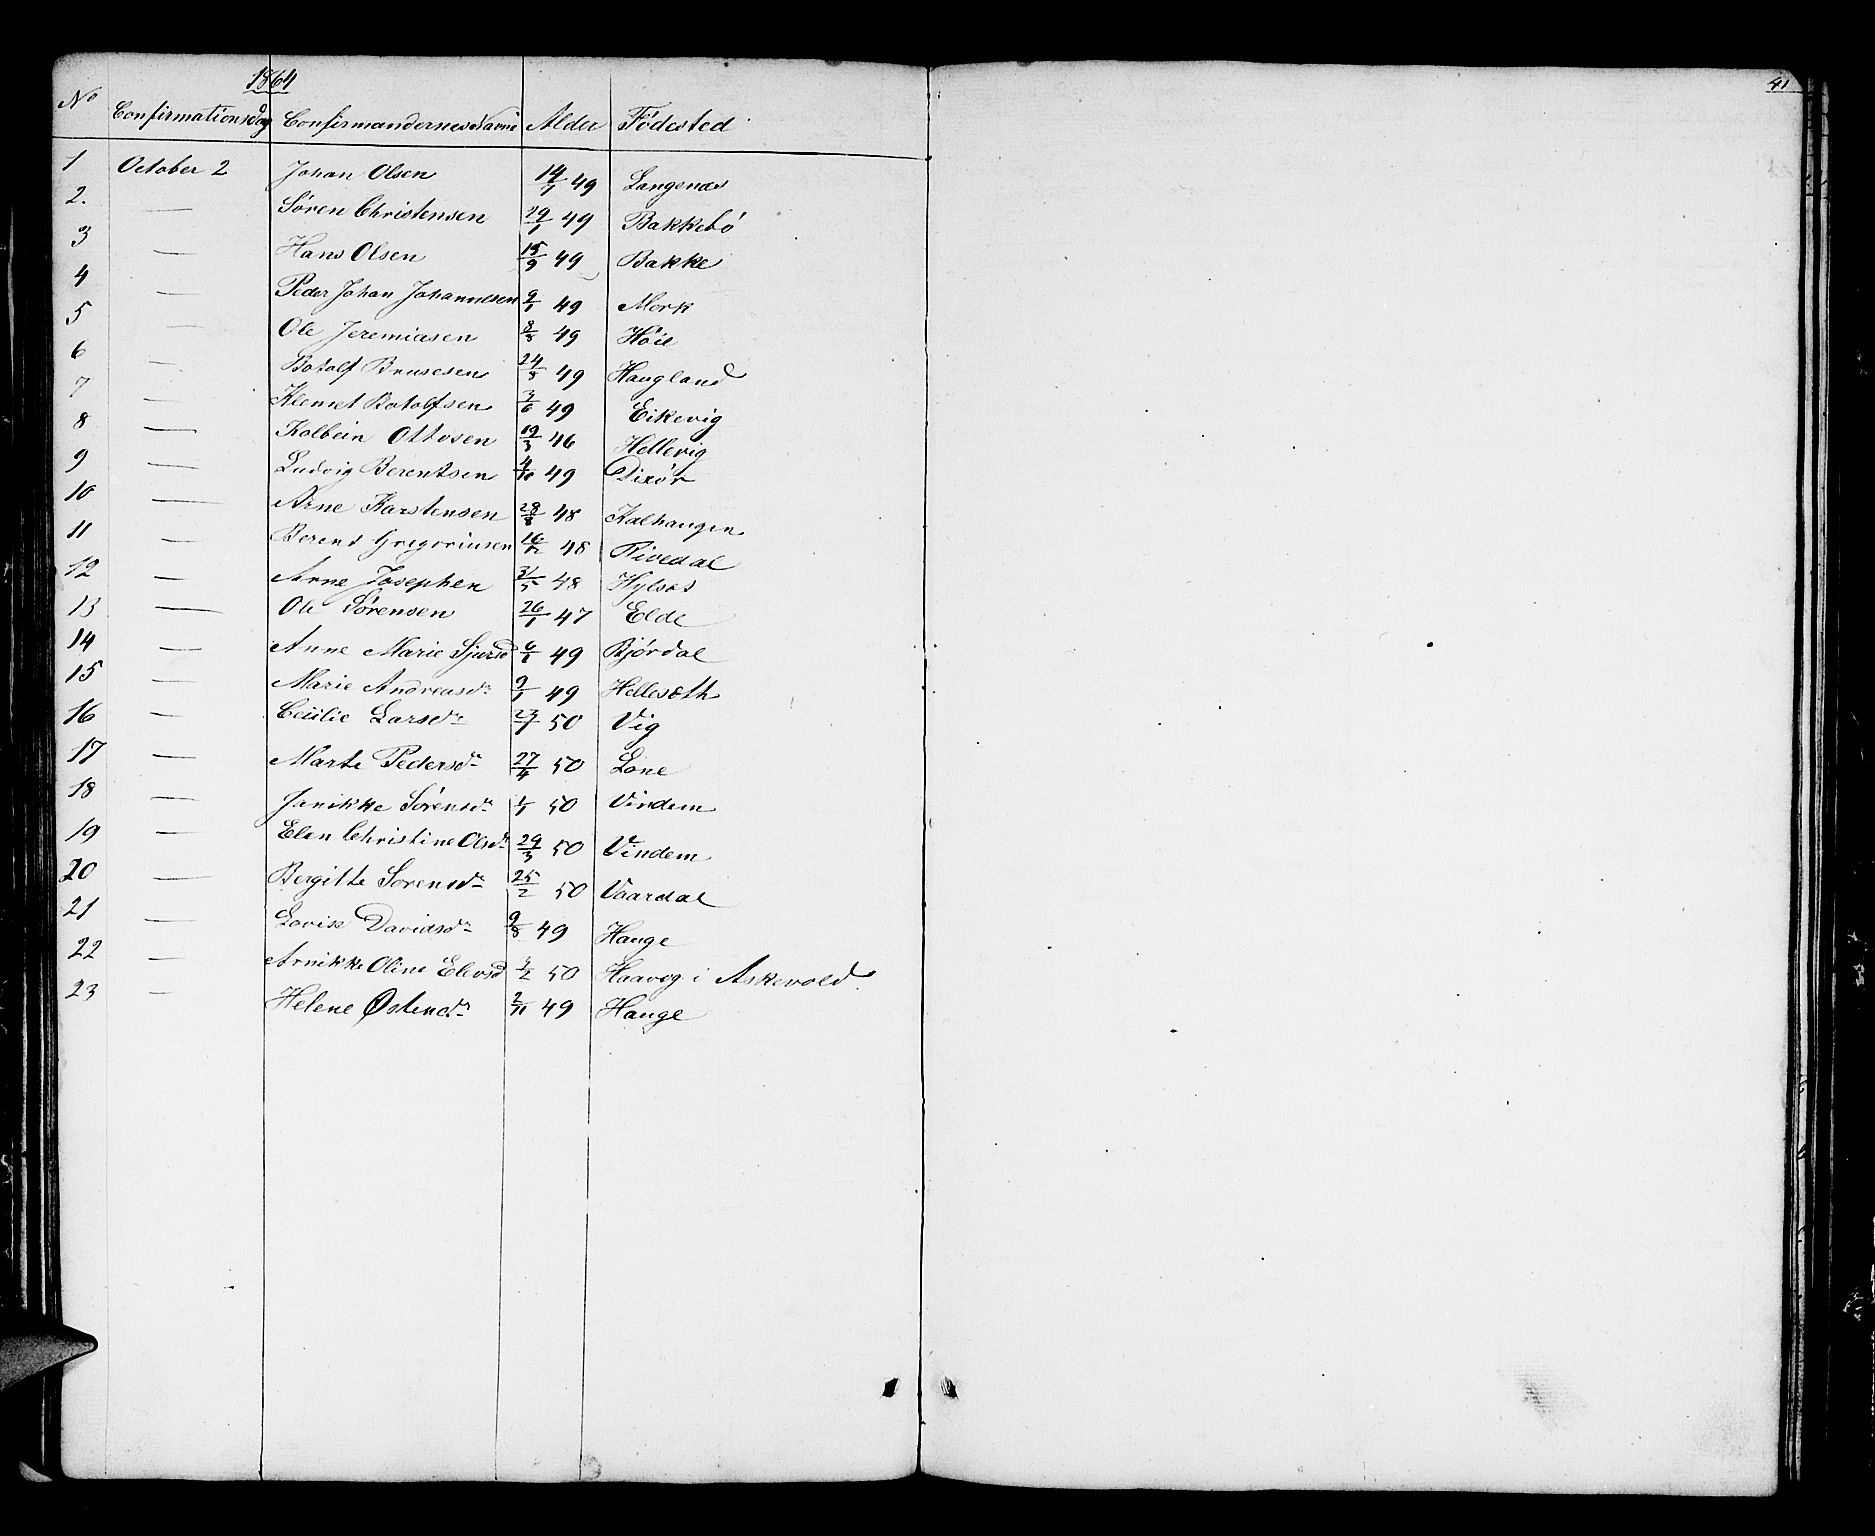 41
1864
No Confirmationsdag Confirmandernes Navne Alder Födested
1 October 2 Johan Olsen 14/1 49 Langenæs
2. — Sören Christensen 29/1 49 Bakkebö
3 — Hans Olsen 15/9 49 Bakke
4 — Peder Johan Johannesen 9/1 49 Mork
5 — Ole Jeremiasen 8/8 49 Höie
6 — Botolf Brusesen 24/5 49 Haugland
7 — Klemet Botolfsen 3/6 49 Eikevig
8 — Kolbein Ottosen 19/3 46 Hellevig
9 — Ludvig Berentsen 4/10 49
10 — Arne Karstensen 28/8 48 Kalhaugen
11 — Berent Gregoriusen 16/12 48 Rivedal
12 — Arne Josephen 31/5 48
13 — Ole Sörensen 26/1 47 Elde
14 — Anne Marie Sjursd 6/1 49 Björdal
15 — Marie Andreasdr 9/1 49 Hellesæth
16 — Cecilie Larsdr 23/1 50 Vig
17 — Marte Pedersdr 27/4 50 Lone
18 — Janikke Sörensdr 1/1 50 Vindem
19 — Elen Christine Olsdr 29/3 50 Vindem
20 — Bergitte Sorensdr 25/2 50 Vaardal
21 — Lovise Davidsdr 9/8 49 Hauge
22 — Arnikke Oline 50 Haavog i Askevold.
23 — Helene Østensdr 2/11 49 Hauge